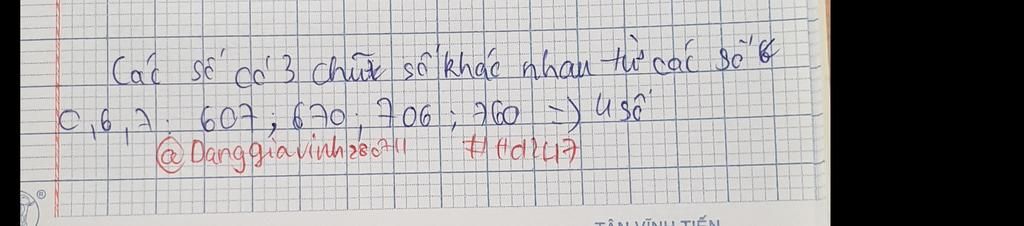 Các số có 3 chữ số khác nhau từ các số
0,6,7: 607; 670; 706; 760 => 4 số
@Danggiavinh280711
TÂN VĨNH TIẾN